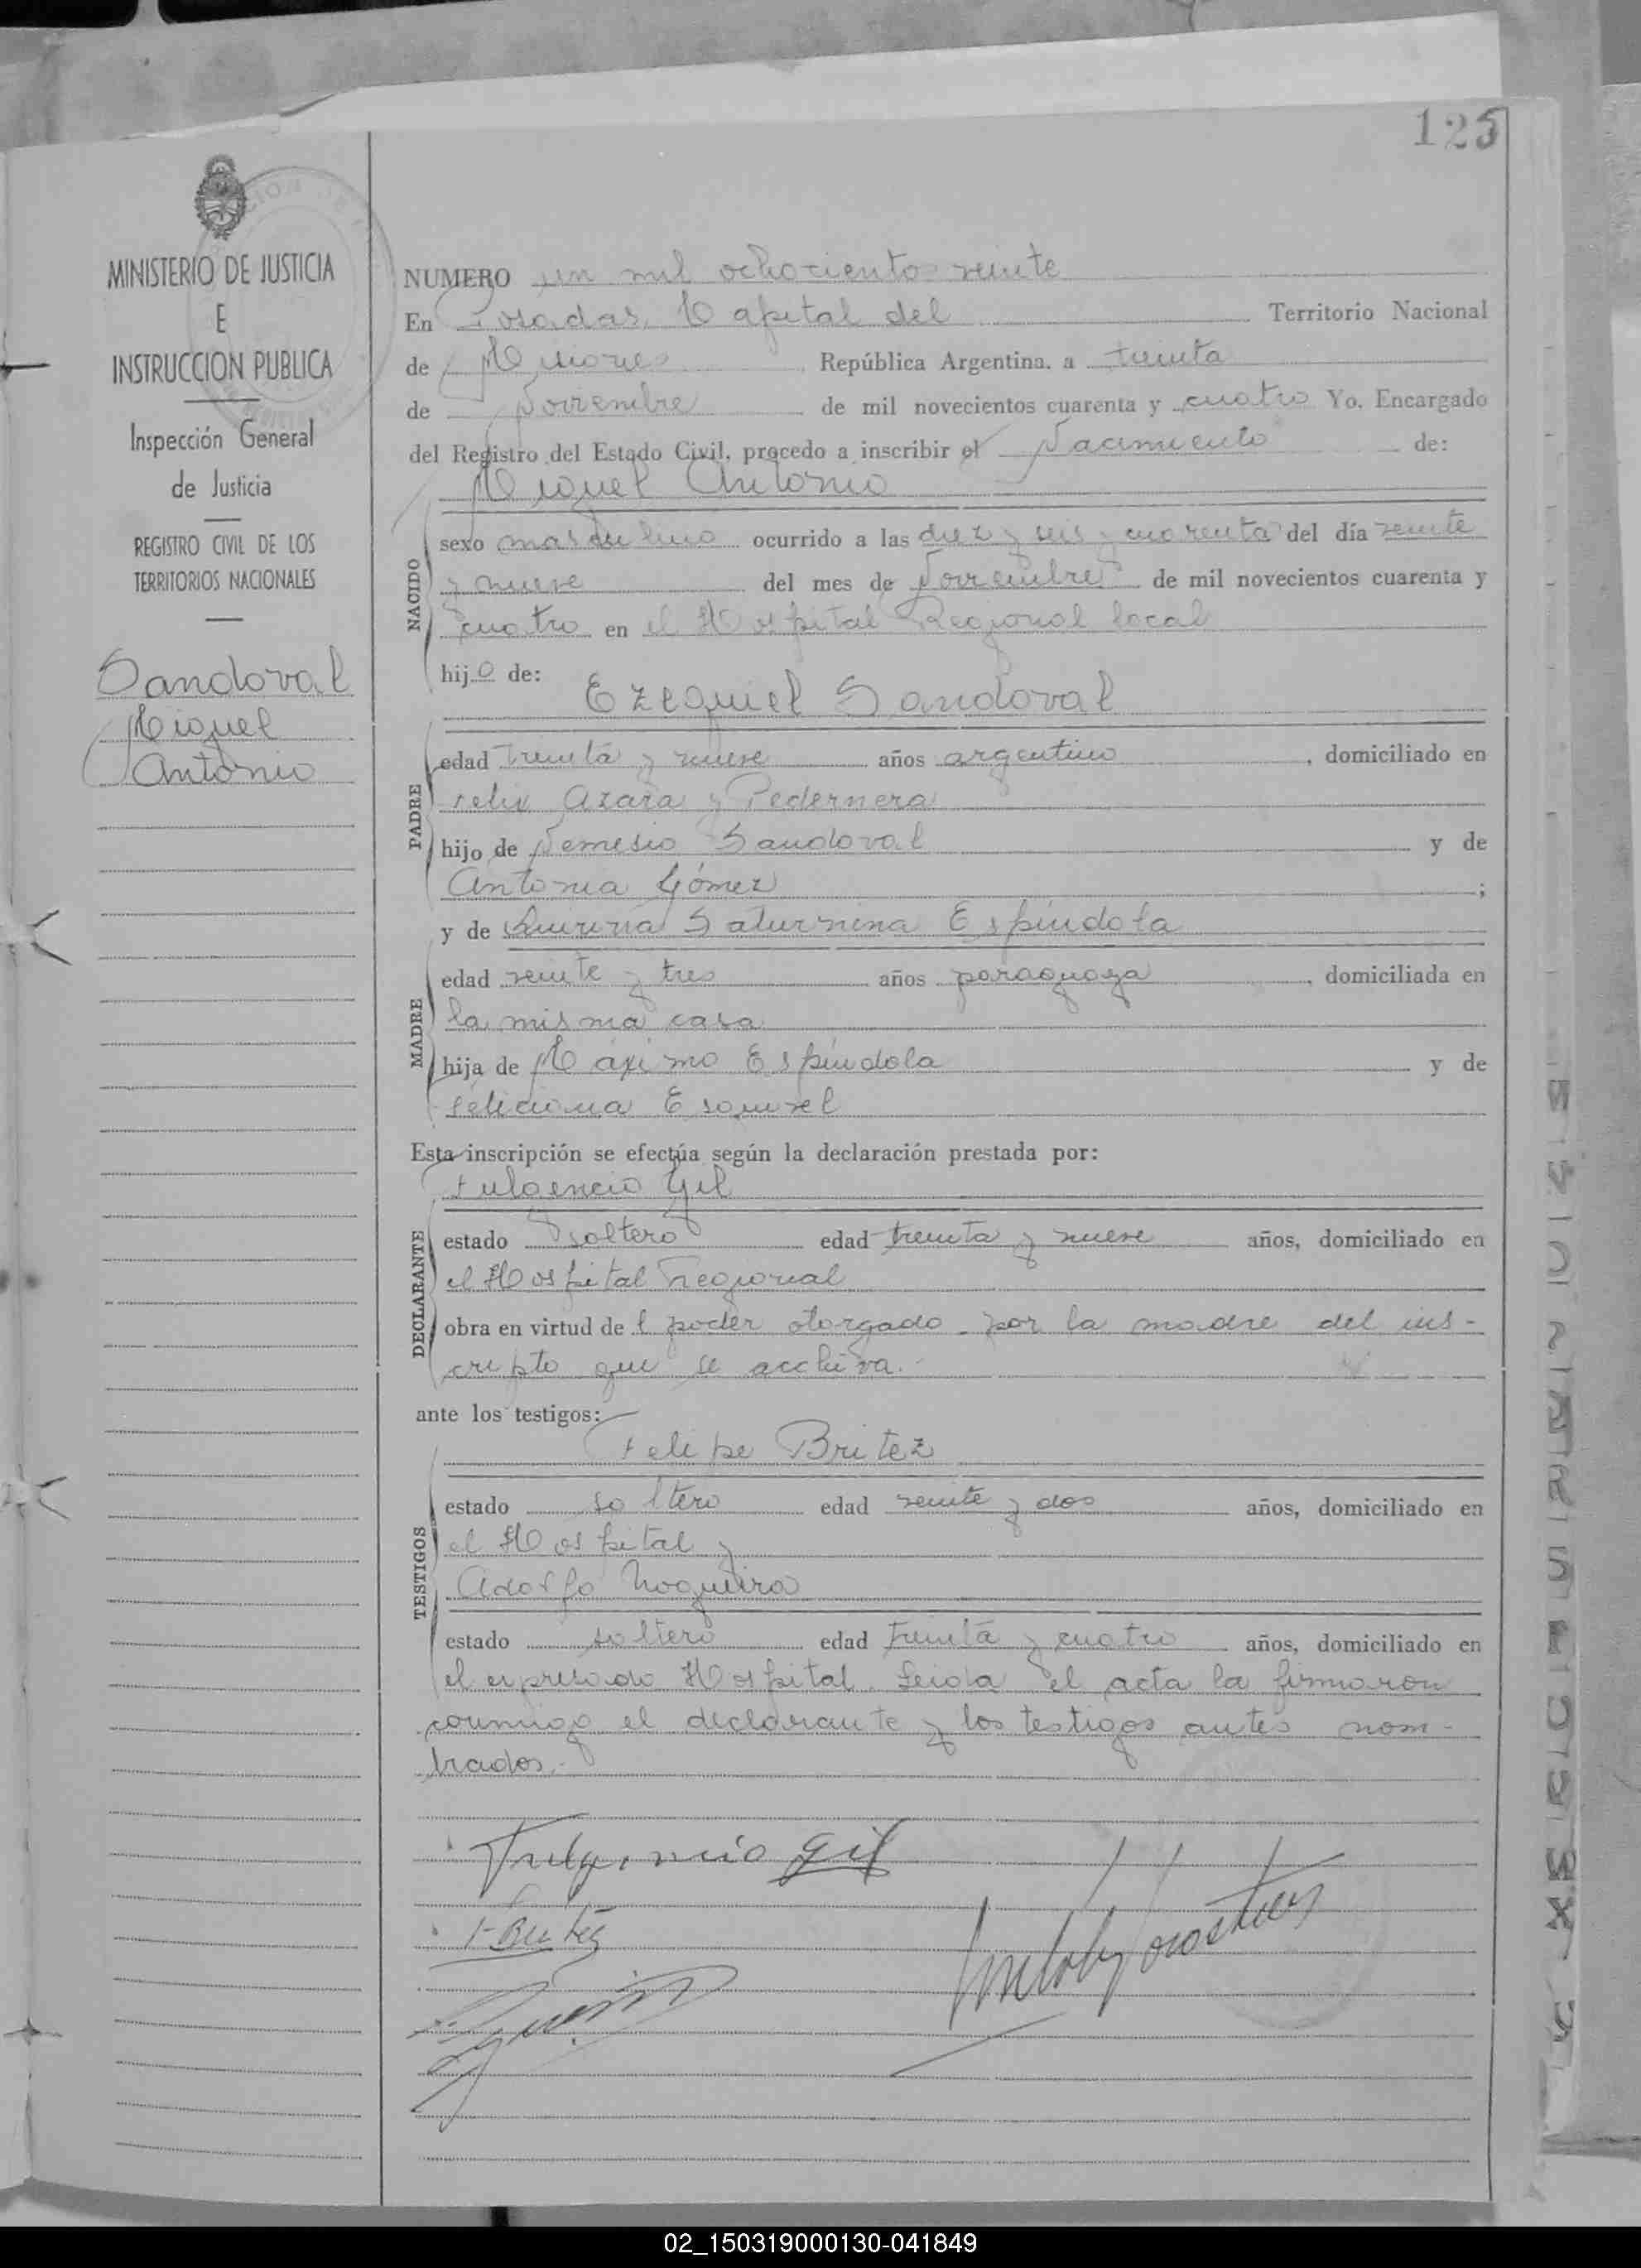 125
MINISTERIO DE JUSTICIA
E
INSTRUCCION PUBLICA
Inspección General
de Justicia
REGISTRO CIVIL DE LOS
TERRITORIOS NACIONALES
Sandoval
Miguel
Antonio
NUMERO un mil ochociento veinte
En Posadas, Capital del Territorio Nacional
de Misiones República Argentina, a treinta
de Noviembre de mil novecientos cuarenta y cuatro Yo, Encargado
del Registro del Estado Civil, procedo a inscribir el Nacimiento de:
Miguel Antonio
NACIDO
sexo masculino ocurrido a las diez y seis y cuarenta del día veinte
y nueve del mes de Noviembre de mil novecientos cuarenta y
cuatro en el Hospital Regional local
hijo de:
Ezequiel Sandoval
PADRE
edad treinta y nueve años argentino, domiciliado en
Felix Azara y Pedernera
hijo de Nemesio Sandoval y de
Antonia Gómez;
y de Saturnina Espíndola
MADRE
edad veinte y tres años paraguaya, domiciliada en
la misma casa
hija de Máximo Espíndola y de
Feliciana Esquivel
Esta inscripción se efectúa según la declaración prestada por:
Fulgencio Gil
DECLARANTE
estado soltero edad treinta y nueve años, domiciliado en
el Hospital Regional
obra en virtud del poder otorgado por la madre del ins-
cripto que se archiva.-
ante los testigos:
Felipe Britez
TESTIGOS
estado soltero edad veinte y dos años, domiciliado en
el Hospital y
Adolfo Nogueira
estado soltero edad treinta y cuatro años, domiciliado en
el expresado Hospital. Leida el acta la firmaron
conmigo el declarante y los testigos antes nom-
brados.-
Fulgencio Gil
F Britez
02_150319000130-041849